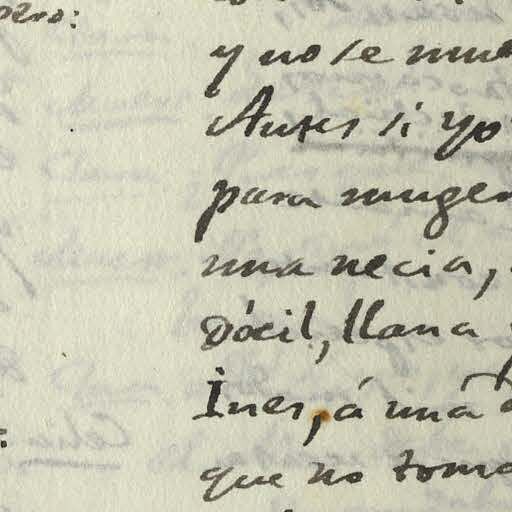 pero:
y no se mue
Antes si yo
para muger
una necia,
Dócil, llana y
Ines, á una d
que no toma